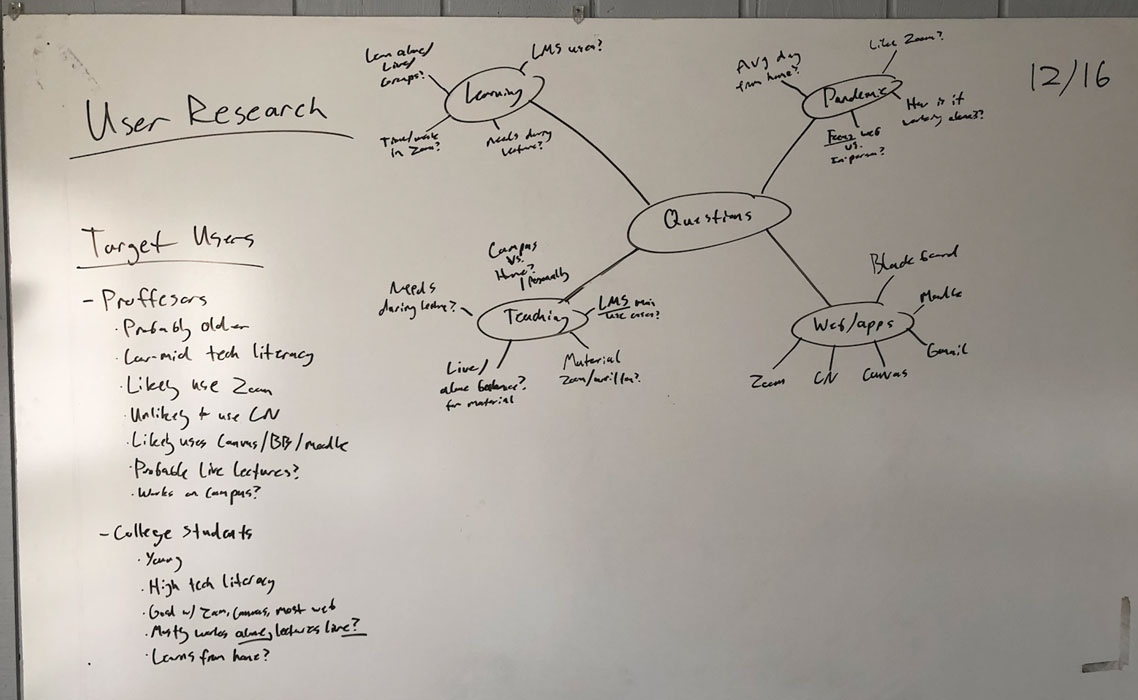 User Research
Target Users
- Proffesors
· Probably older
· Low-mid tech literacy
· Likely use Zoom
· Unlikely to use CN
· Likely uses Canvas/BB/moodle
· Probable Live Lectures?
· Works on Campus?
- College Students
· Young
· High tech literacy
· Good w/ Zoom, Canvas, most web
· Mostly works alone, lectures live?
· Learns from home?
Questions
Learning
Learn alone/
Live/
Groups?
LMS uses?
Time/week
in Zoom?
Needs during
lecture?
Pandemic
Avg day
from home?
Like Zoom?
How is it
working alone?
web
vs.
In-person?
Teaching
Campus
vs.
Home?
Personally
Needs
during lecture?
LMS main
use cases?
Live/
alone balance?
for material
Material
Zoom/written?
Web/apps
Blackboard
Moodle
Gmail
Canvas
CN
Zoom
12/16